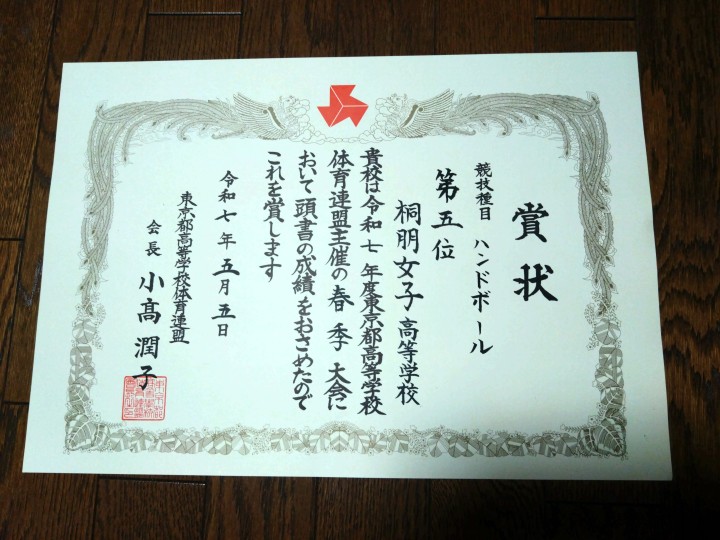 賞状
競技種目 ハンドボール
第五位
桐朋女子高等学校
貴校は令和七年度東京都高等学校
体育連盟主催の春季大会に
おいて頭書の成績をおさめたので
これを賞します
令和七年五月五日
東京都高等学校体育連盟
会長 小髙潤子